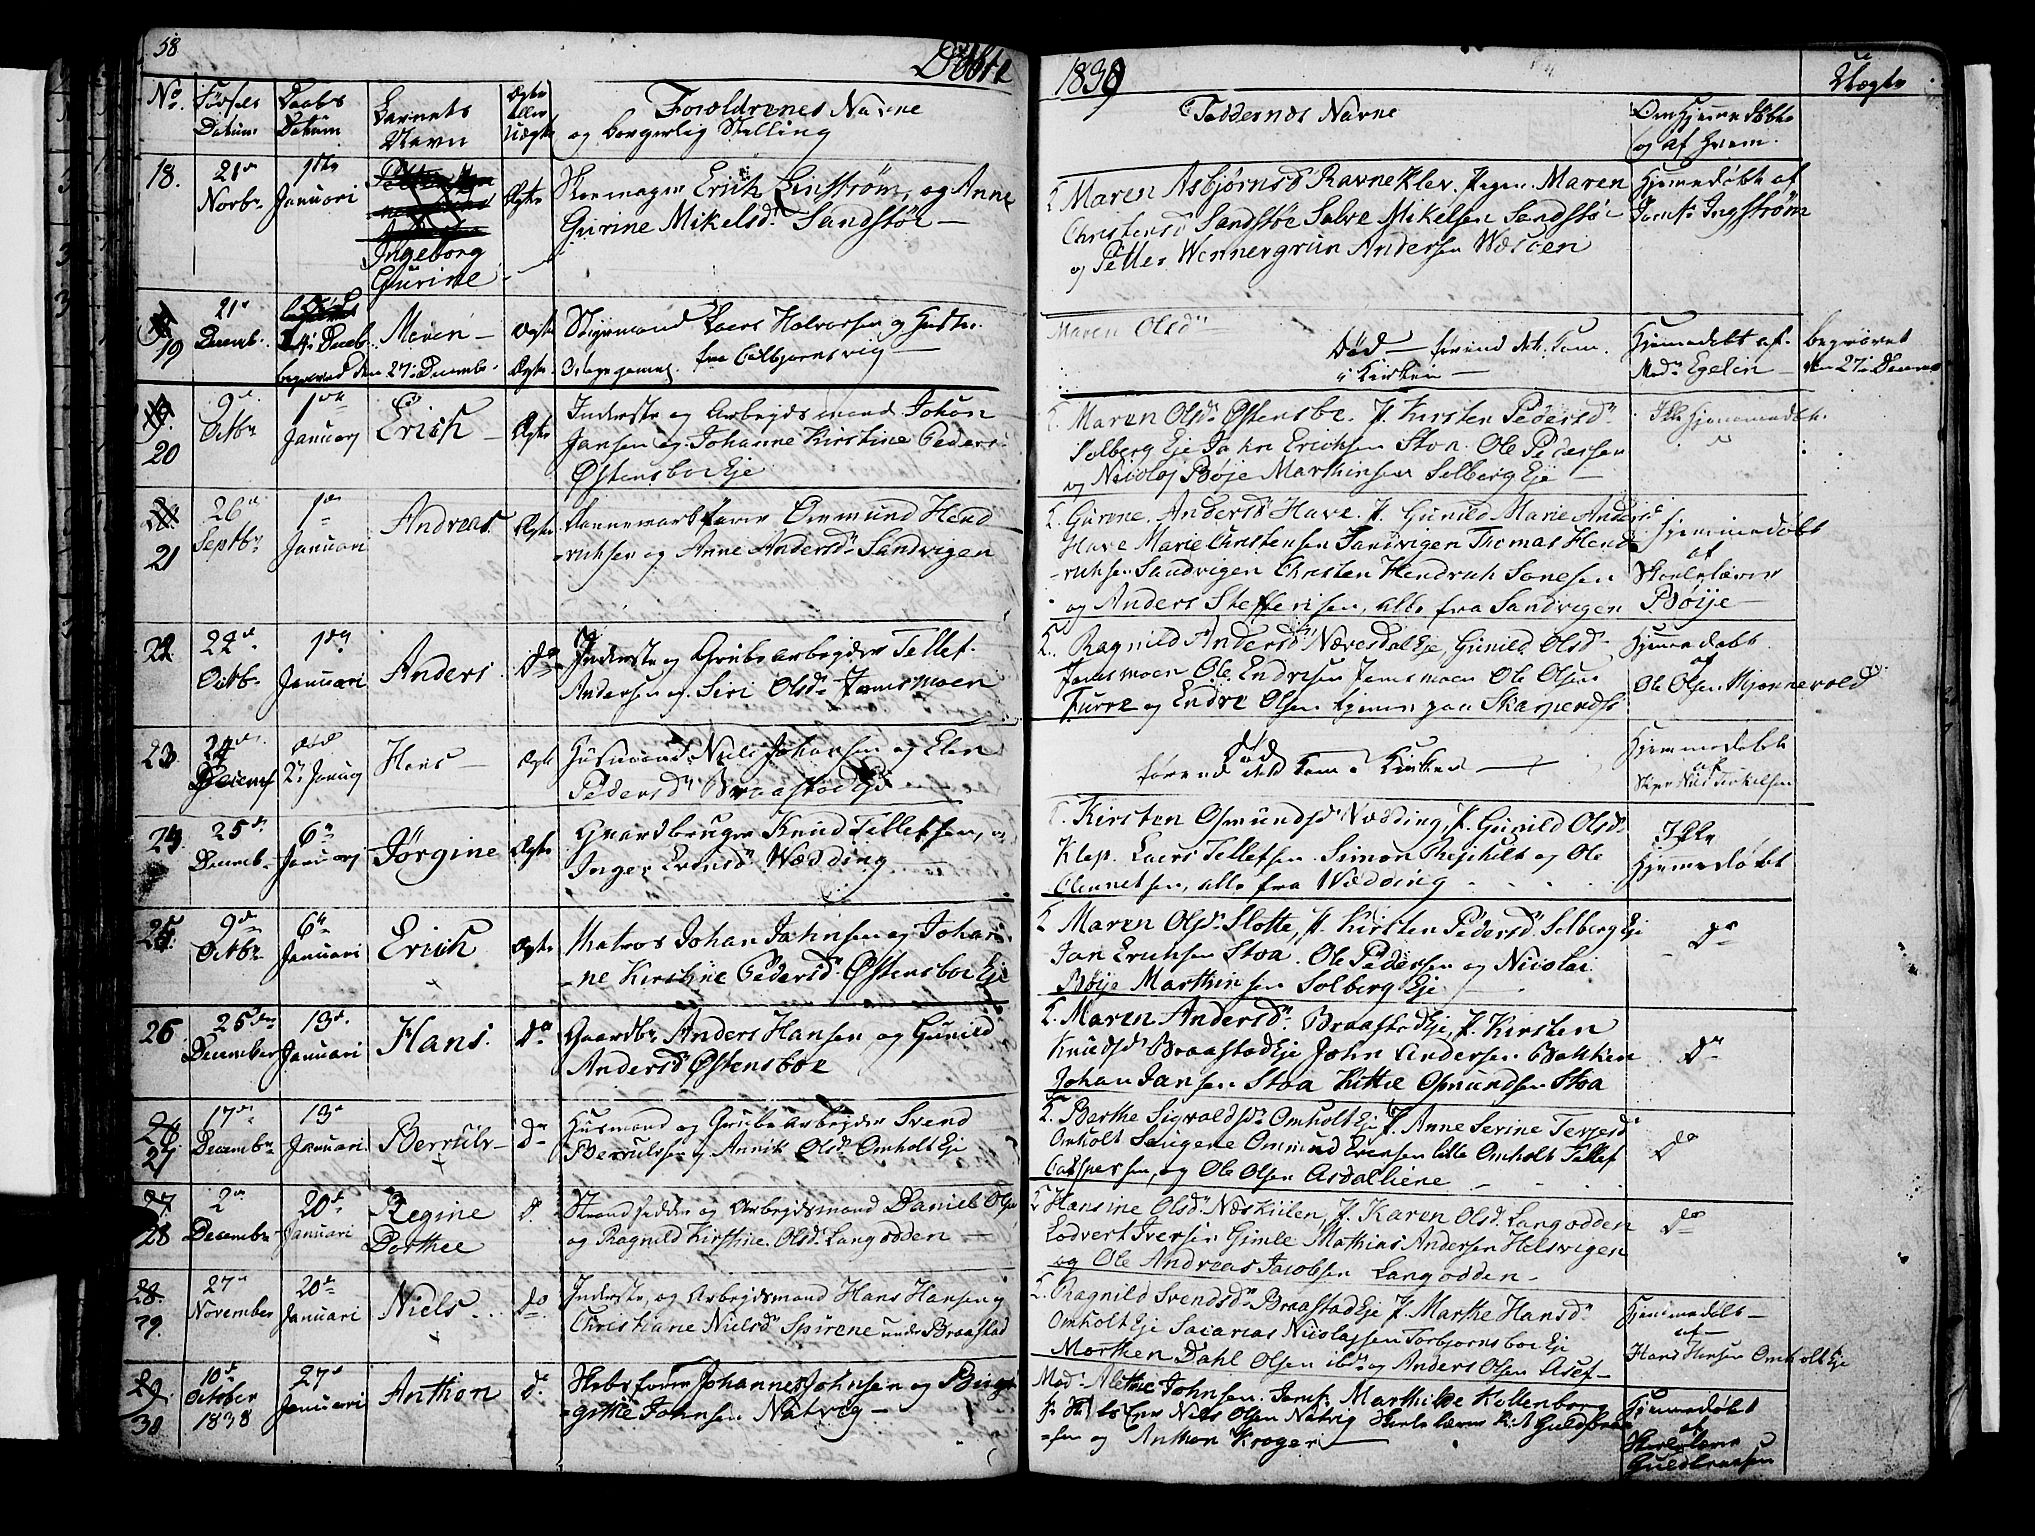 58
Døbte
1839
Uægte
No
Fødsels Datum
Daabs Datum
Barnets Navn
Ægte eller Uægte
Forældrenes Navne
og borgerlig Stilling
Faddernes Navne
Om Hjemmedøbte
og af hvem.
18.
21de Novbr
1ste Januari
Ingeborg
Gurine
Ægte
Skomager Erich Linstrøm, og Anne
Gurine Mikelsdr Sandstøe
Maren Asbjørnsd Ravneklev. Pigen Maren
Christensd Sandstøe Salve Mikelsen Sandstøe
og Petter Wennergrün Andersen
Hjemmedøbt af
Ingstrøm
19
21 Decemb.
Død
24 Decemb.
begraved den 27de Decembr
Maren
Ægte
Styrmand Laers Halvorsen og Hustr.
3 dage gamel. fra Colbjørnsvig
Maren Olsdr
Død – førend det kom
i Kirken
Hjemmedøbt af
Mad. Egelin
begravet
den 27de Decemb
20
9de Octbr
1ste Januarj
Erich
Ægte
Inderste og Arbejdsmand Johan
Jansen og Johanne Kirstine Peders
Østensboe Eje
Maren Olsdr Østensboe. P. Kirsten Pedersdr
Solberg Eje Jahn Erichsen Stoa Ole Pedersen
og Nicolaj Bøje Marthinsen Solberg Eje
Ikke Hjemmedøbt
21
26de Septbr
1ste Januari
Andreas
Ægte
Ommund Hend
richsen og Anne Andersdr Sandvigen
Gurene Andersdr Have. P. Gunild Marie Andersd
Have Marie Christensen Sandvigen Thomas Hend
richsen Sandvigen Christen Hendrich Sonesen
og Anders Steffensen, alle fra Sandvigen
Hjemmedøbt
af
Skolelærer
Bøije
22
22de Octbr
1ste Januari
Anders
Do
Inderste og Grubearbejder Tellef
Andersen og Siri Olsdr Jomsmoen
Ragnild Andersdr Næresdal Eje, Gunild Olsd
Jomsmoen Ole Endresen Jomsmoen Ole Olsen
Furre og Endre Olsen tjener paa Skarpenes
Hjemmedøbt
af
Ole Olsen Hjønnevold
23
24de Decemb
død
2den Januarj
Hans
Ægte
Husmand Niels Johansen og Elen
Pedersdr Braastad Eje
Død
førend det kom i Kirken
Hjemmedøbt
af
Niels Terkelsen
24
25de Decemb.
6te Januarj
Jørgine
Ægte
Gaardbruger Knud Tellefsen, og
Inger Evensdr Wædding
Kirsten Osmundsdr Wædding, P. Gunild Olsdr
Klep. Laers Tellefsen. Simon Rejehilt og Ole
Clennetsen, alle fra Wædding
Ikke
Hjemmedøbt
25
9de Octbr
6te Januari
Erich
Ægte
Matros Johan Jahnsen og Johan
ne Kirstine Pedersdr Østensboe Eje
Maren Olsdr Slotte, P. Kirsten Pedersdr Solberg Eje
Jan Erichsen Stoa. Ole Pedersen og Nicolai
Bøije Marthinsen Solberg Eje
Do
26
25de December
13de Januari
Hans.
Do
Gaardbr Anders Hansen og Gunild
Andersd Østensboe
Maren Andersdr Braastad Eje, P. Kirsten
Knudsd Braastad Eje John Andersen Bakken
Johan Jansen Stoa Kittil Osmundsen Stoa
Do
27
17de Decembr
13de Januari
Berrulv
Do
Husmand og Grubearbejder Svend
Berrulvsen og Anniken Olsdr Omholt Eje
Berthe Sigvaldsdr Omholt Eje P. Anne Serine Terjesd
Omholt Ommund Evensen lille Omholt Tellef
Caspersen, og Ole Olsen Asdalliene
Do
28
2den Decembr
20de Januari
Regine
Dorthee
Do
Strandsidder og Arbejdsmand Daniel Olsen
og Ragnild Kirstine Olsdr Langodden
Hansine Olsdr Næskiilen, P. Karen Olsd Langodden
Lodvert Iversen Gimle Mathias Andersen Helsvigen
og Ole Andreas Jacobsen Langodden
Do
29.
27de November
20de Januari
Niels
Do
Inderste, og Arbejdsmand Hans Hansen og
Christiane Nielsdr Spirene under Braastad
Ragnild Svendsdr Braastad Eje P. Marthe Hansdr
Omholt Eje Sacarias Nicolajsen Torbjørnsboe Eje
Morthen Dahl Olsen ibd og Anders Olsen Asef
Hjemmedøbt
af
Hans Hansen Omholt Eje
30
10de October
1838
27de Januari
Anthon
Do
Skibsfører Johannes Johnsen og Birgi
githe Johnsen Natvig
Mad. Alethie Johnsen. Jomf. Marthilde Kollenborg
Niels Olsen Natvig Skolelærer Guldbran
sen og Anthon Kroger
Hjemmedøbt
af
Skolelærer
Guldbransen